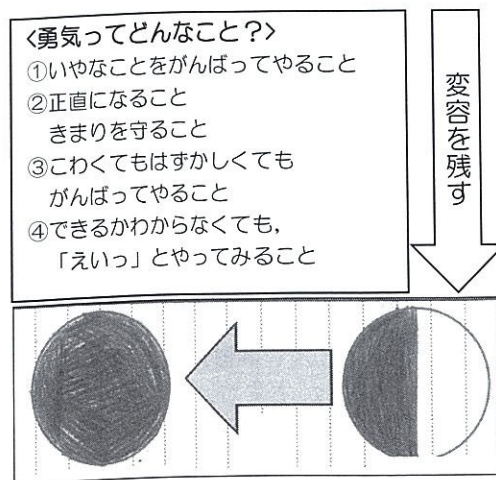 <勇気ってどんなこと?>
①いやなことをがんばってやること
②正直になること
きまりを守ること
③こわくてもはずかしくても
がんばってやること
④できるかわからなくても,
「えいっ」とやってみること
変容を残す